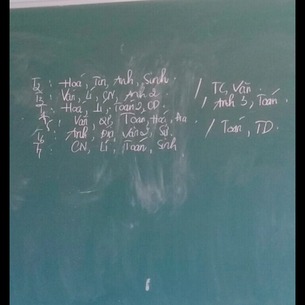 T2: Hoá, Tin, Anh, Sinh. / TC, Văn
T3: Văn, Lí, CN, Anh 2 / Anh 3, Toán.
T4: Hoá, Lí, Toán 2, CD.
T5: Văn, QP, Toán, Hoá, / Toán, TD.
T6: Anh, Văn 2, Sử.
T7: CN, Lí, Toán, Sinh